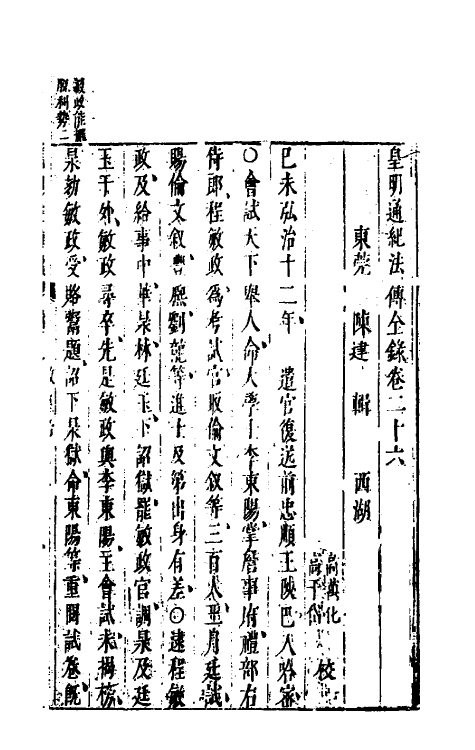 皇明通紀法傳全錄卷二十六
東莞 陳建 輯 西湖 高萬化 高千倍 校
己未弘治十二年 遣官復送前忠順王陝巴入哈密
○會試天下舉人命大學士李東陽掌詹事府禮部右
侍郎程敏政為考試官取倫文叙等三百人至月廷試
賜倫文叙豐熙劉龍等進士及第出身有差○逮程敏
政及給事中華杲林廷玉下詔獄罷敏政官調杲及廷
玉于外敏政尋卒先是敏政與李東陽主會試未揭榜
杲劾敏政受賂鬻題詔下杲獄命東陽等重閱試卷既